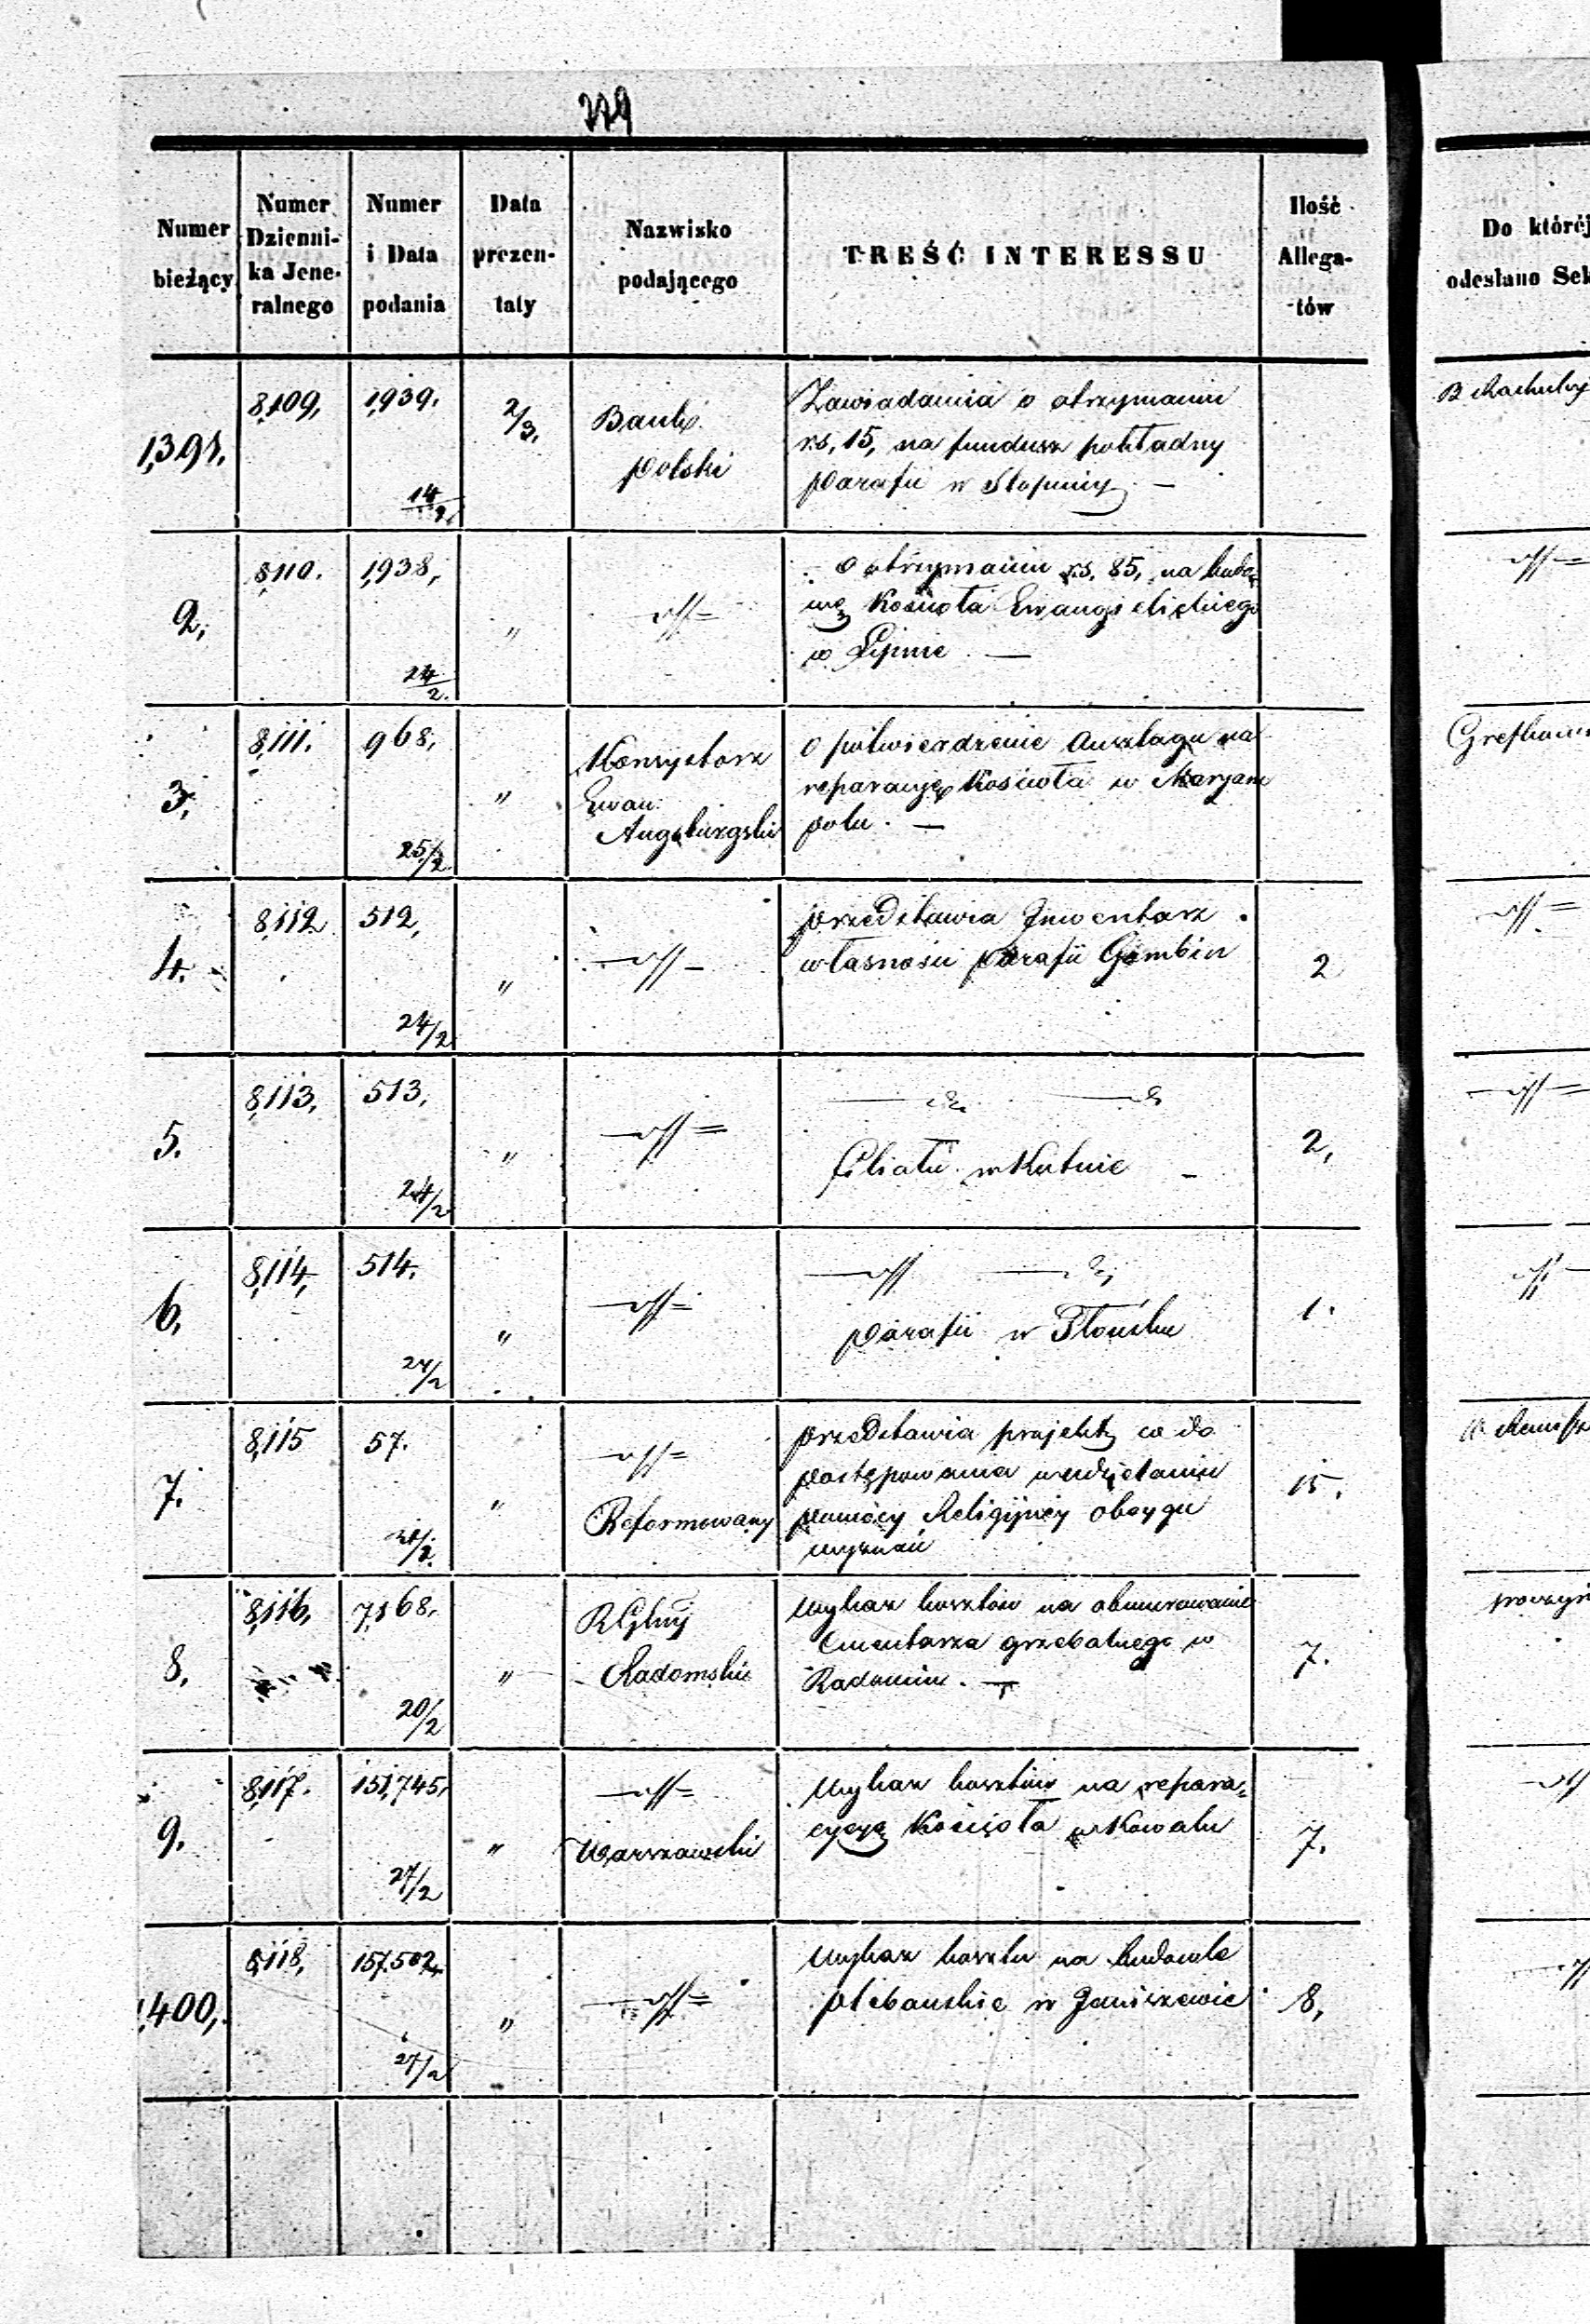 279
Numer bieżący
Numer Dzienni-ka Jene-ralnego
Numer i Data podania
Data prezen-taty
Nazwisko podającego
TREŚĆ INTERESSU
Ilość Allega-tów
Do której
odesłano Sek
1,391. 8,109, 1,939. 14/2 2/3. Bank polski
Zawiadamia o otrzymaniu
rs. 15, na fundusz pokładny
parafii w Stopnicy. —
2, 8,110. 1,938, 24/2. "
o otrzymaniu rs. 85, na budo
wę Kościoła Ewangielickiego
w Lipnie. —
3, 8,111. 968, 25/2. " Konsystorz
Ewan:
Augsburgski
O potwierdzenie Anszlagu na
reparacyę Kościoła w Maryam
polu. —
4. 8,112 512, 24/2 "
przedstawia Inwentarz
własności parafii Gombin
2
5. 8,113, 513, 24/2 "
filiału w Kutnie —
2,
6, 8,114, 514. 24/2 "
parafii w Płońsku
1.
7. 8,115 57. "
Reformowany
przedstawia projekt co do
postępowania w udzielaniu
pomocy Religijnej obojga
wyznań
15.
8, 8,116, 7,168, 20/2 "
Radomski
Wykaz kosztów na obmurowanie
Cmentarza grzebalnego w
Radomiu. —
7.
9. 8,117. 151,745, 27/2 "
Warszawski
Wykaz kosztów na repara-
cyę Kościoła w Kowalu
7.
1,400, 8,118, 157,502, 27/2 "
Wykaz kosztu na budowle
plebańskie w Janiszewie
8,